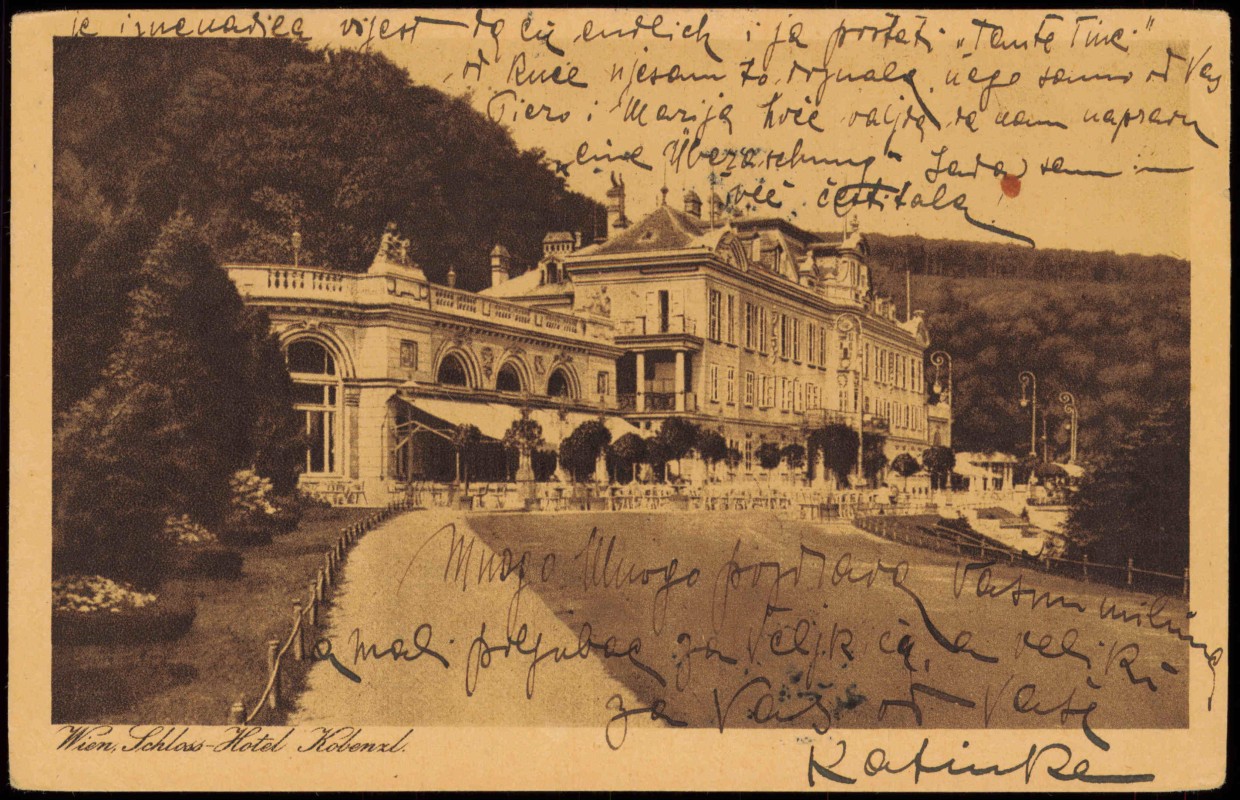 je iznenadila vijest da ću endlich i ja postati „Tante Tinci"
od kuće njesam to doznala, nego samo od Vas
Piero i Marija hoće valjda da nam naprave
„eine Überaschung" Sada sam im
već čestitala!
Mnogo Mnogo pozdrava Vasim milima
a mali poljubac za Veljkića, a veliki
za Vas od Vaše
Katinke
Wien, Schloss-Hotel Kobenzl.